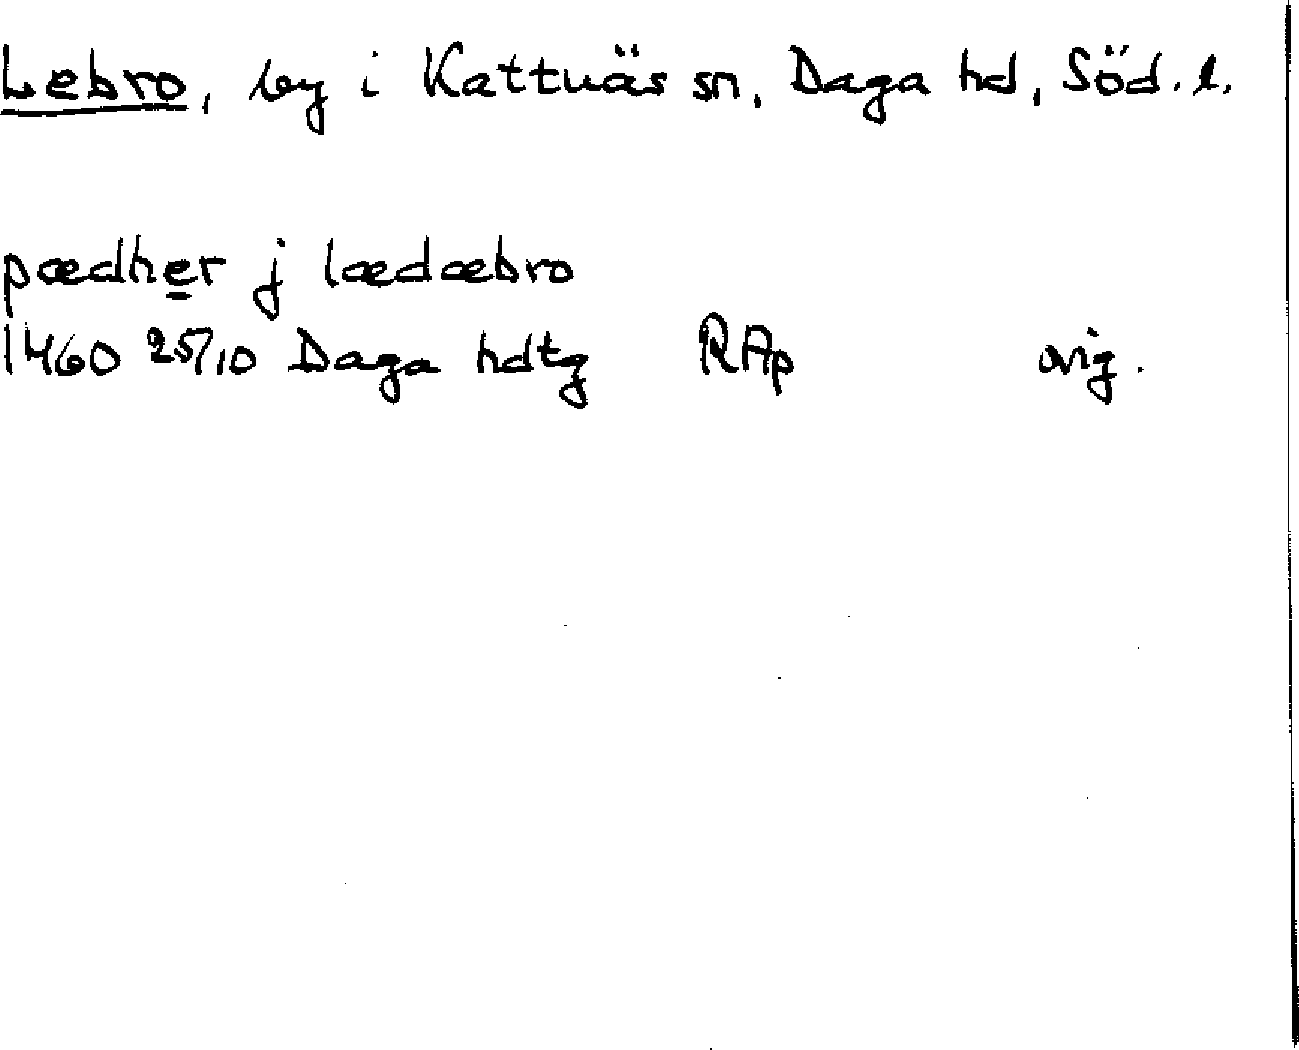 Lebro, by i Kattnäs sn, Daga hd, Söd. l.
pædher j lædæbro
1460 25/10 Daga hdtg RAp orig.